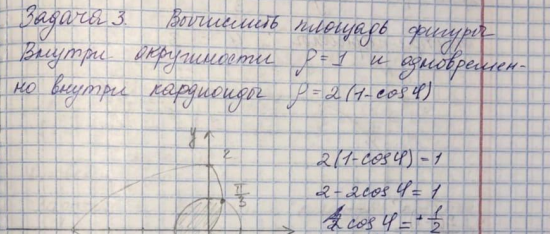 Задача 3. Вычислить площадь фигуры
внутри окружности ρ=1 и одновремен-
но внутри кардиоиды ρ=2(1-cosφ)
y
2
2(1-cosφ)=1
π/3
2-2cosφ=1
cosφ=+1/2